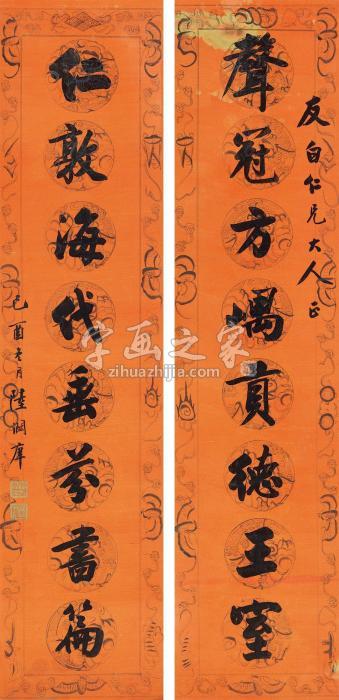 友白仁兄大人正
聲冠方嵎貢德王室
仁敦海岱垂芬書篇
己酉冬月陸潤庠
字画之家
zihuazhijia.com